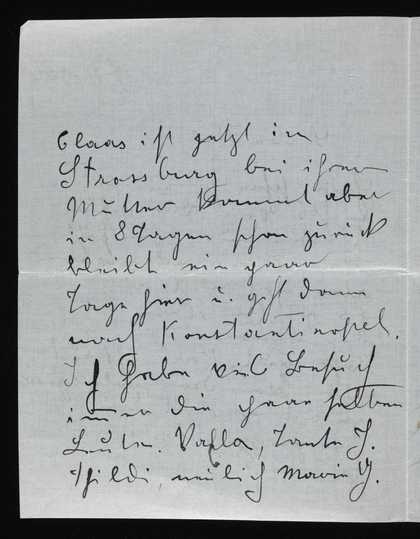 Claas ist jetzt in
Strassburg bei ihrer
Mutter kommt aber
in 8 Tagen schon zurück
bleibt ein paar
Tage hier u. geht dann
nach Konstantinopel.
Ich habe viel Besuch
immer die paar selben
Leute. Tante J.
neulich Marie